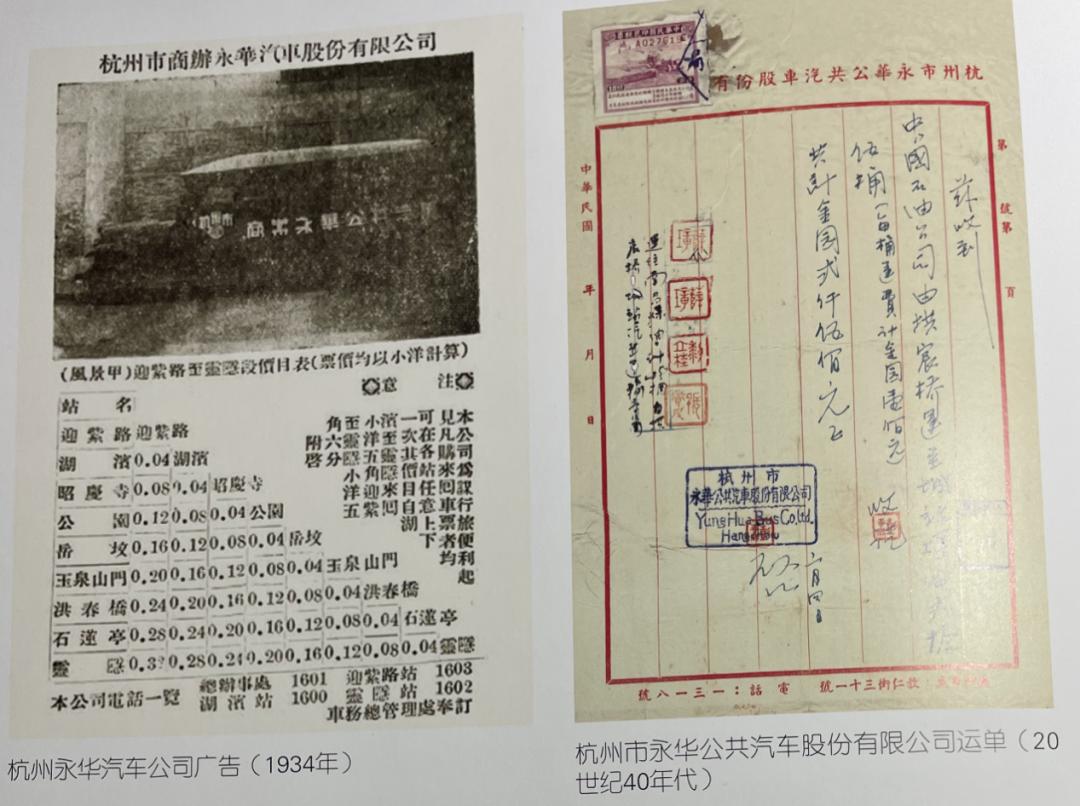 杭州市商辦永華汽車股份有限公司
商辦永華公共
(風景甲)迎紫路至靈隱段價目表(票價均以小洋計算)
注意
本公司為謀行旅便利起
見凡購來回車票者均
可在各站任意上下
一次其價目自湖
濱至靈隱來回
小洋五角迎紫
至靈隱小洋五
角六分
附啓
站名
迎紫路 迎紫路
湖濱 0.04 湖濱
昭慶寺 0.08 0.04 昭慶寺
公園 0.12 0.08 0.04 公園
岳坟 0.16 0.12 0.08 0.04 岳坟
玉泉山門 0.20 0.16 0.12 0.08 0.04 玉泉山門
洪春橋 0.24 0.20 0.16 0.12 0.08 0.04 洪春橋
石蓮亭 0.28 0.24 0.20 0.16 0.12 0.08 0.04 石蓮亭
靈隱 0.32 0.28 0.24 0.20 0.16 0.12 0.08 0.04 靈隱
本公司電話一覽
總辦事處 1601 迎紫路站 1603
湖濱站 1600 靈隱站 1602
車務總管理處奉訂
杭州永华汽车公司广告（1934年）
A027619
杭州市永華公共汽車股份有
第 號第 頁
茲收到
中國石油公司由拱宸橋運至城站
伍桶(每桶運費計金圓壹佰元)
共計金圓弍仟伍佰元正
中華民國 年 月 日
杭州市
永華公共汽車股份有限公司
Yung Hua Bus Co. Ltd.
Hangchow
二月四日
仁街三十一號 電話：一三一八號
杭州市永华公共汽车股份有限公司运单（20
世纪40年代）